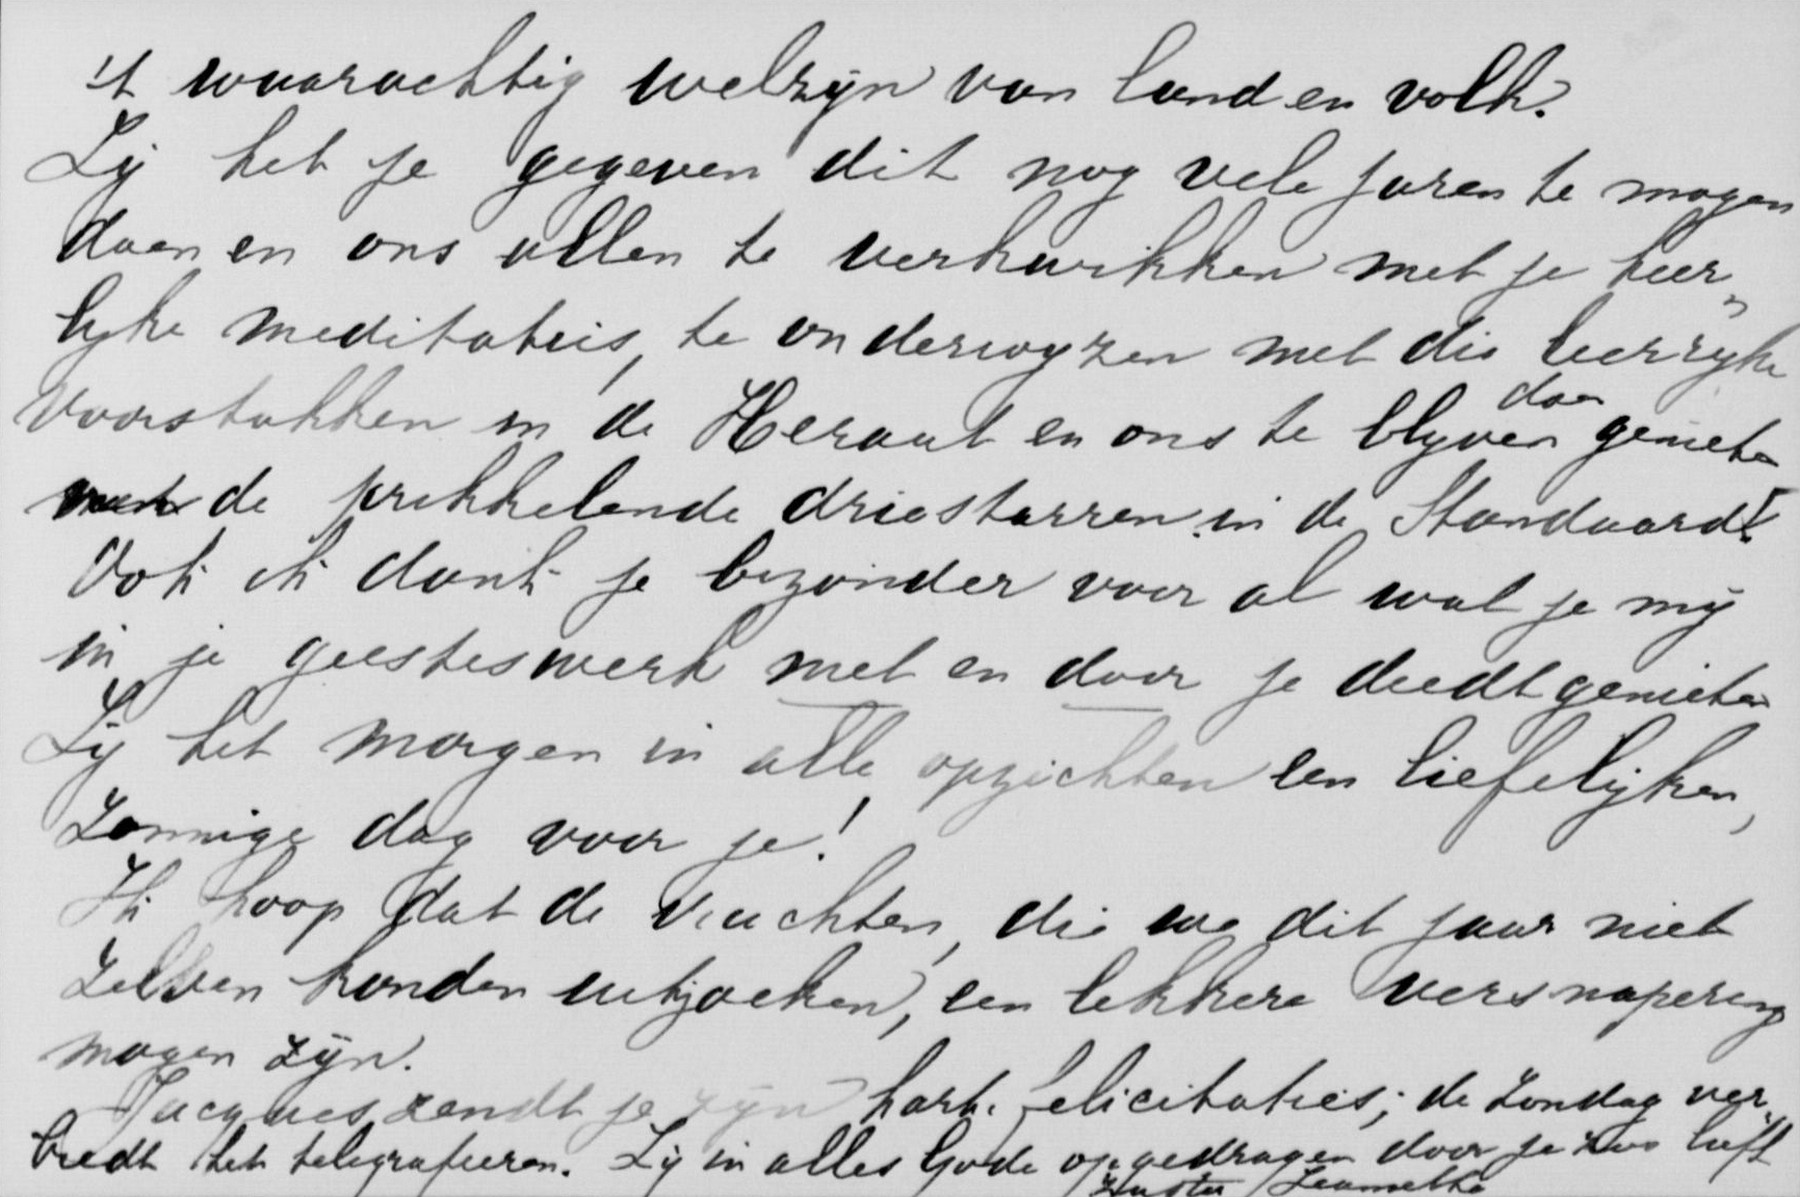 't waarachtig welzijn van land en volk.
Zij het je gegeven dit nog vele jaren te mogen
doen en ons allen te verkwikken met je heer„
lyke meditatiës, te onderwyzen met die leerryke
voorstukken in de Heraut en ons te blyven doen genieten
de prikkelende driestarren in de Standaard!
Ook ik dank je byzonder voor al wat je mij
in je geesteswerk met en door je deedt genieten
Zij het morgen in alle opzichten een liefelijken,
zonnige dag voor je!
Ik hoop dat de vruchten, die we dit jaar niet
zelven konden uitzoeken, een lekkere versnapering
mogen zijn.
Jacques zendt je zijn hart. felicitaties; de Zondag ver„
biedt het telegrafeeren. Zij in alles Gode opgedragen door je
Zuster Jeannette